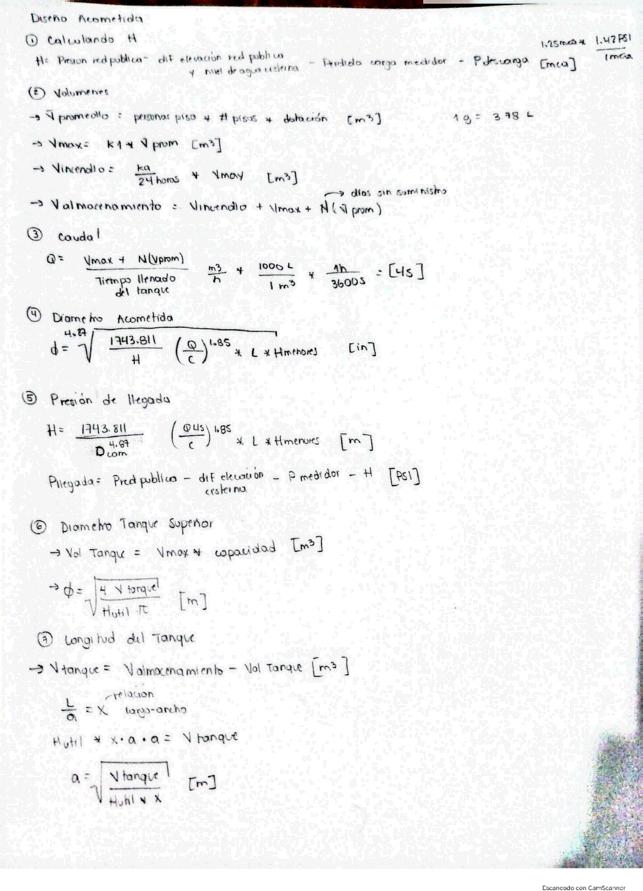 Diseño Acometida
① Calculando H
H= Presion red publica - dif elevación red publica y nivel de agua cisterna - Perdida carga medidor - P descarga [mca] 1.25mca * 1.42 PSI / 1mca
② Volumenes
→ V̄ promedio = personas piso * # pisos * dotación [m³] 1g = 3.78 L
→ Vmax = k1 * V̄ prom [m³]
→ Vincendio = ka / 24 horas * Vmax [m³]
→ Valmacenamiento = Vincendio + Vmax + N(V̄ prom) → dias sin suministro
③ Caudal
Q = Vmax + N(Vprom) / Tiempo llenado del tanque m3/h * 1000 L / 1 m³ * 1h / 3600s = [L/s]
④ Diametro Acometida
ϕ = 4.87√ 1743.811 / H (Q/C)^1.85 * L * Hmenores [in]
⑤ Presión de llegada
H = 1743.811 / D com^4.87 (QL/s / C)^1.85 * L * Hmenores [m]
Pllegada = Pred publica - dif elevación cisterna - P medidor - H [PSI]
⑥ Diametro Tanque Superior
→ Vol Tanque = Vmax * capacidad [m³]
→ ϕ = √ 4 V tanque / Hutil · π [m]
⑦ Longitud del Tanque
→ Vtanque = Valmacenamiento - Vol Tanque [m³]
L/a = X relacion largo-ancho
Hutil * x · a · a = Vtanque
a = √ Vtanque / Hutil * X [m]
Escaneado con CamScanner